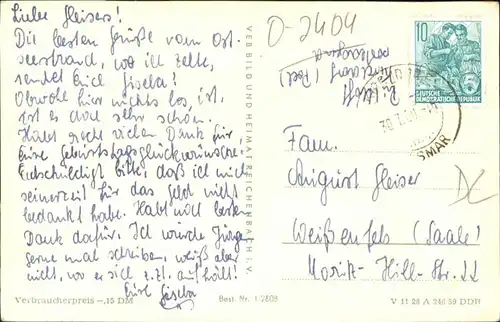 Liebe Gleisers!
Die besten Grüße vom Ost-
seestrand, wo ich zelte,
sendet Euch Gisela!
Obwohl hier nichts los, ist,
ist es doch sehr schön.
Habt recht vielen Dank für
Eure Geburtstagsglückwünsche!
Entschuldigt bitte, daß ich mich
seinerzeit für das Geld nicht
bedankt habe. Habt noch besten
Dank dafür. Ich würde
gerne mal schreiben, weiß aber
nicht, wo er sich z.Zt. aufhält!
Eure Gisela
Verbraucherpreis -,15 DM
VEB BILD UND HEIMAT REICHENBACH I. V.
Best. Nr. 1/2808
O-2404
10
DEUTSCHE
DEMOKRATISCHE REPUBLIK
WISMAR
Fam.
August Gleiser
Weißenfels (Saale)
Moritz-Hill-Str. 22
V 11 28 A 246 59 DDR